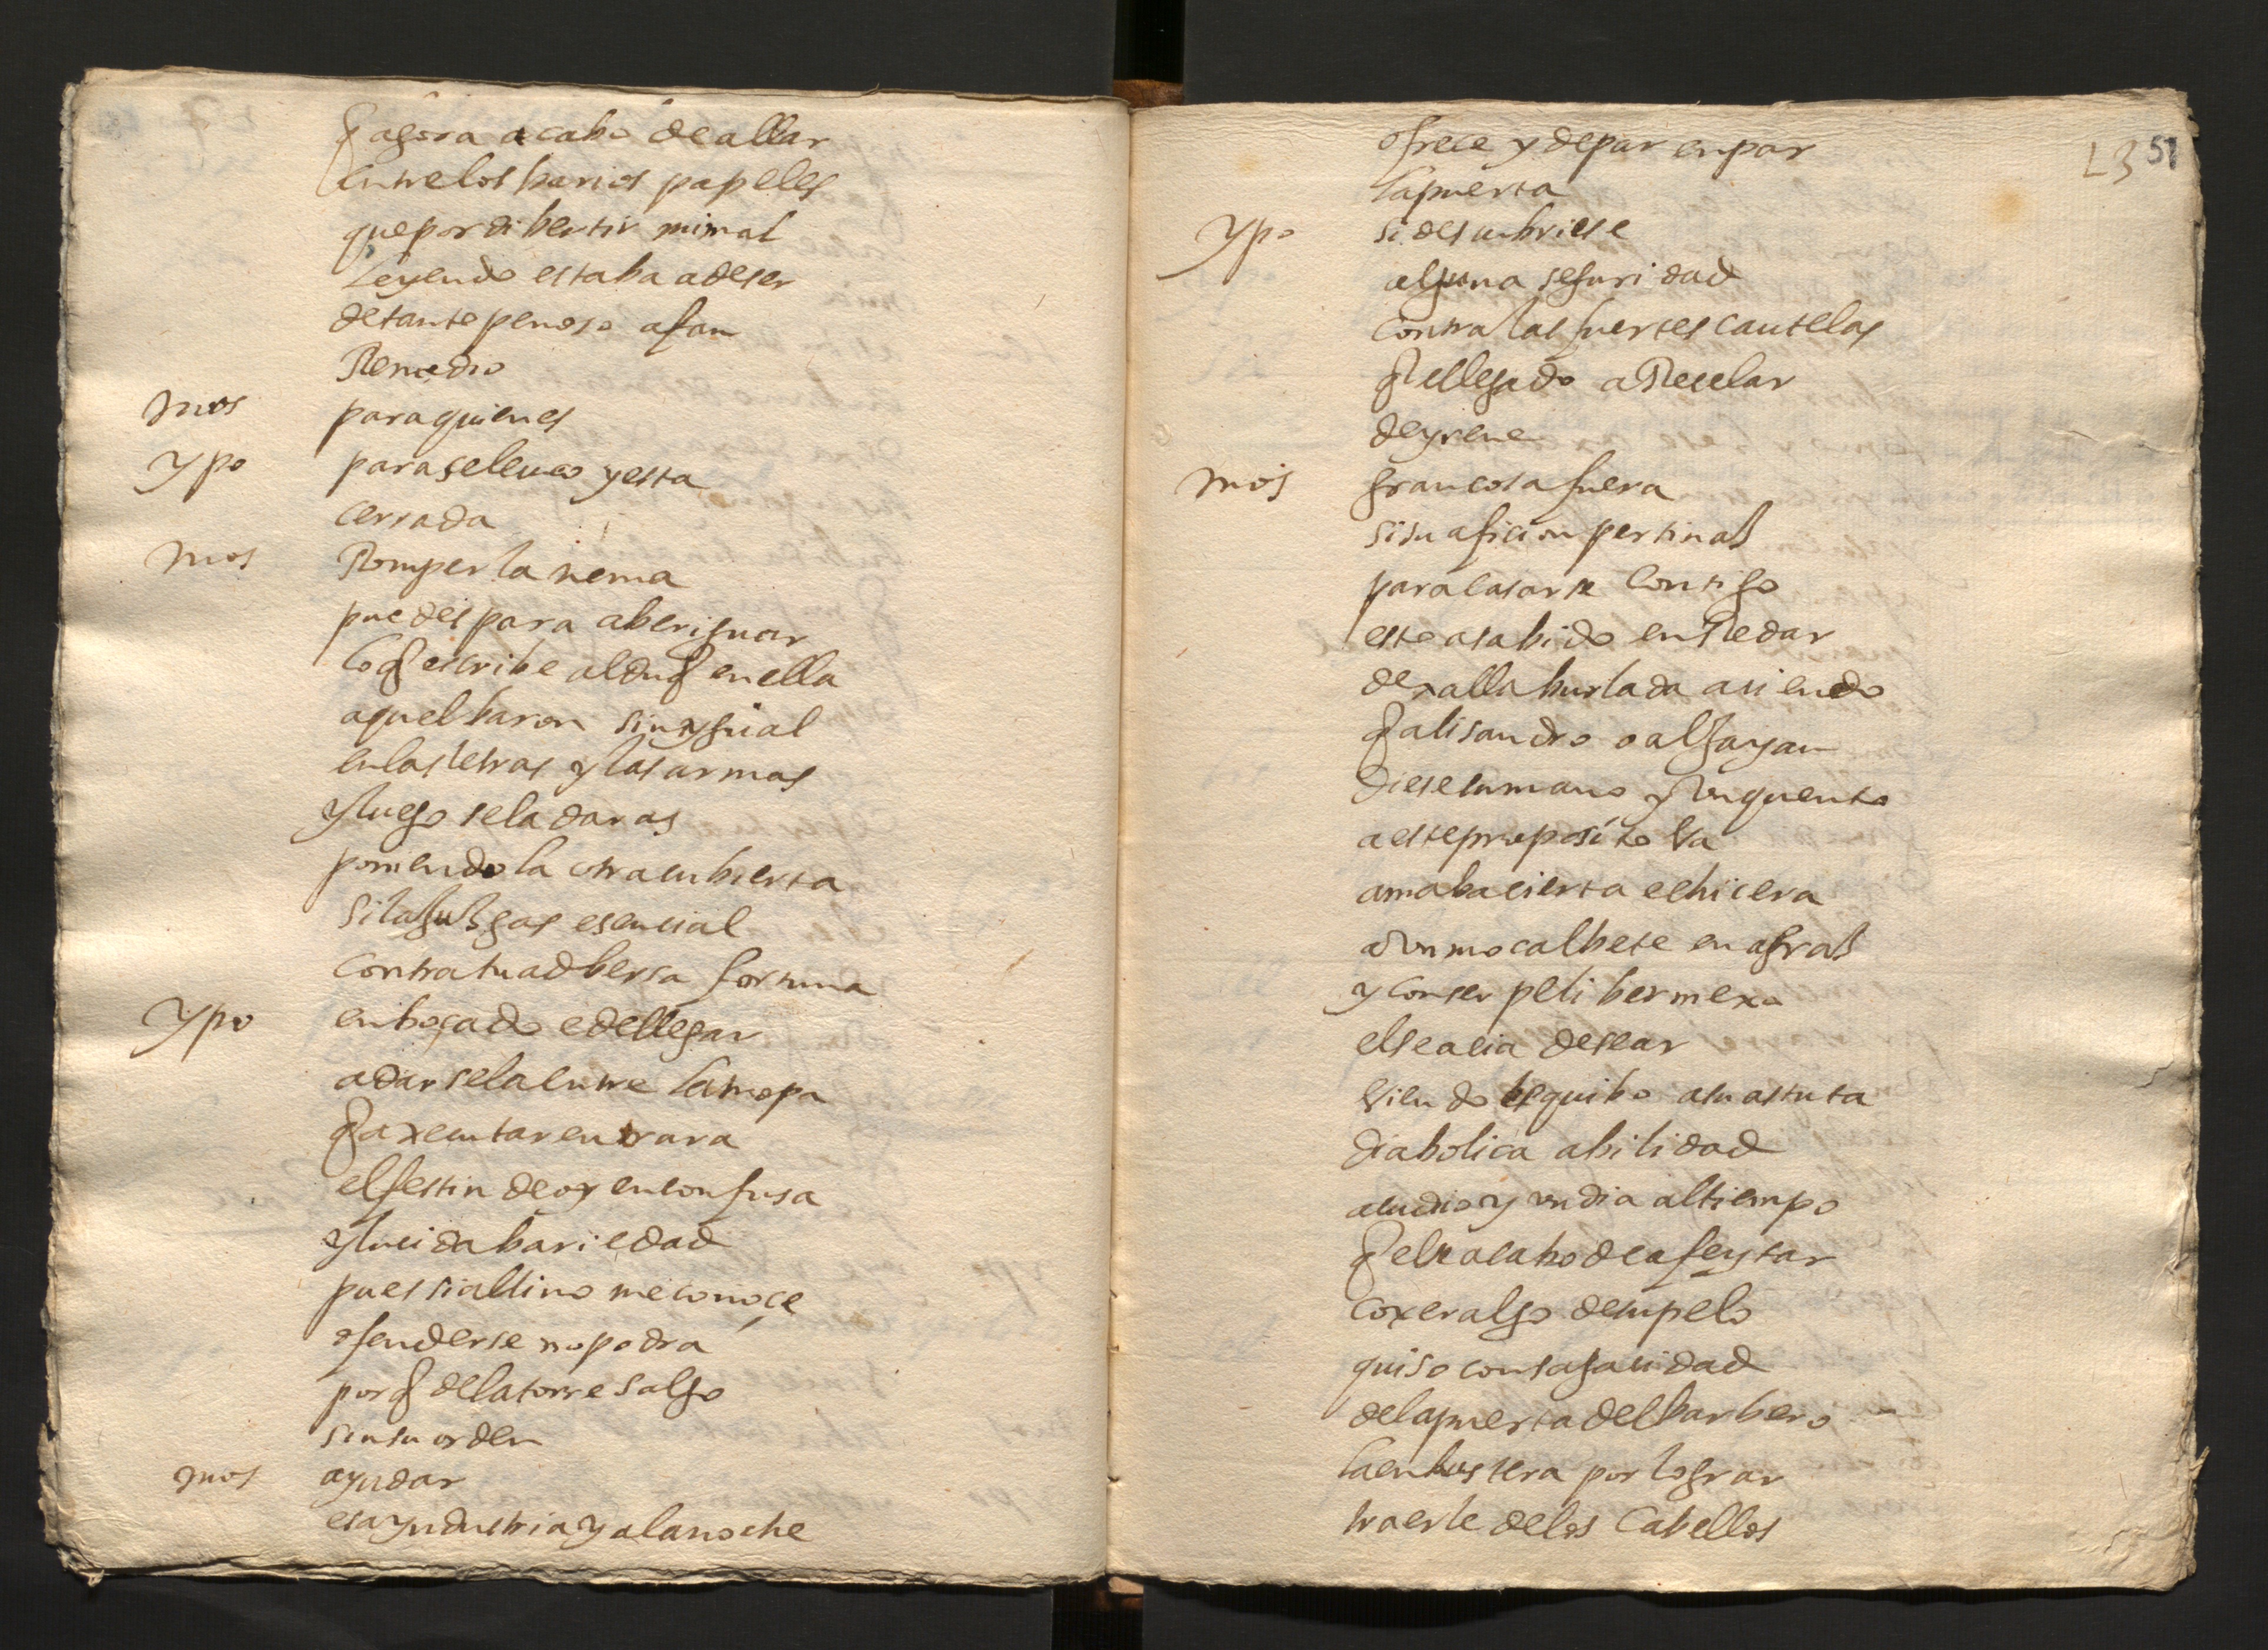 q agora acabo de allar
entre los barios papeles
que por dibertir mi mal
leyendo estaba a de ser
de tante penoso afan
Remedio
mos para quien es
ypo para seleuco y esta
cerrada
mos Romper la nema
puedes para aberiguar
lo q escribe al duq en ella
aquel baron sin ygual
en las letras y las armas
y luego se la daras
poniendola otra cubierta
si la juzgas esencial
contra tu adbersa fortuna
ypo enboçado e de llegar
a darsela entre la tropa
q a xecutar entrara
el festin de oy en confusa
y lucida bariedad
pues si alsino me conoçe
ofenderse no podra
porq de la torre salgo
sin su orden
mos ayudar
esa yndustria y a la noche
L3 51
ofrece y de par en par
la puerta
ypo si descubriese
alguna seguridad
contra las fuertes cautelas
q e llegado a Recelar
de yrene
mos gran cosa fuera
si su aficion pertinaz
para casarse contigo
este a sabido enRedar
dexalla burlada aciendo
q a lisandro o al jayan
diese su mano y un quento
a este proposito va
amaba cierta echicera
a un mocalbete en agraz
y con ser peli bermexo
el se acia desear
viendo esquibo a su astuta
diabolica abilidad
acudio y un dia al tiempo
q el se acabo de afeytar
coxer algo de su pelo
quiso con sagacidad
de la puerta del barbero
la enbustera por lograr
traerle de los cabellos